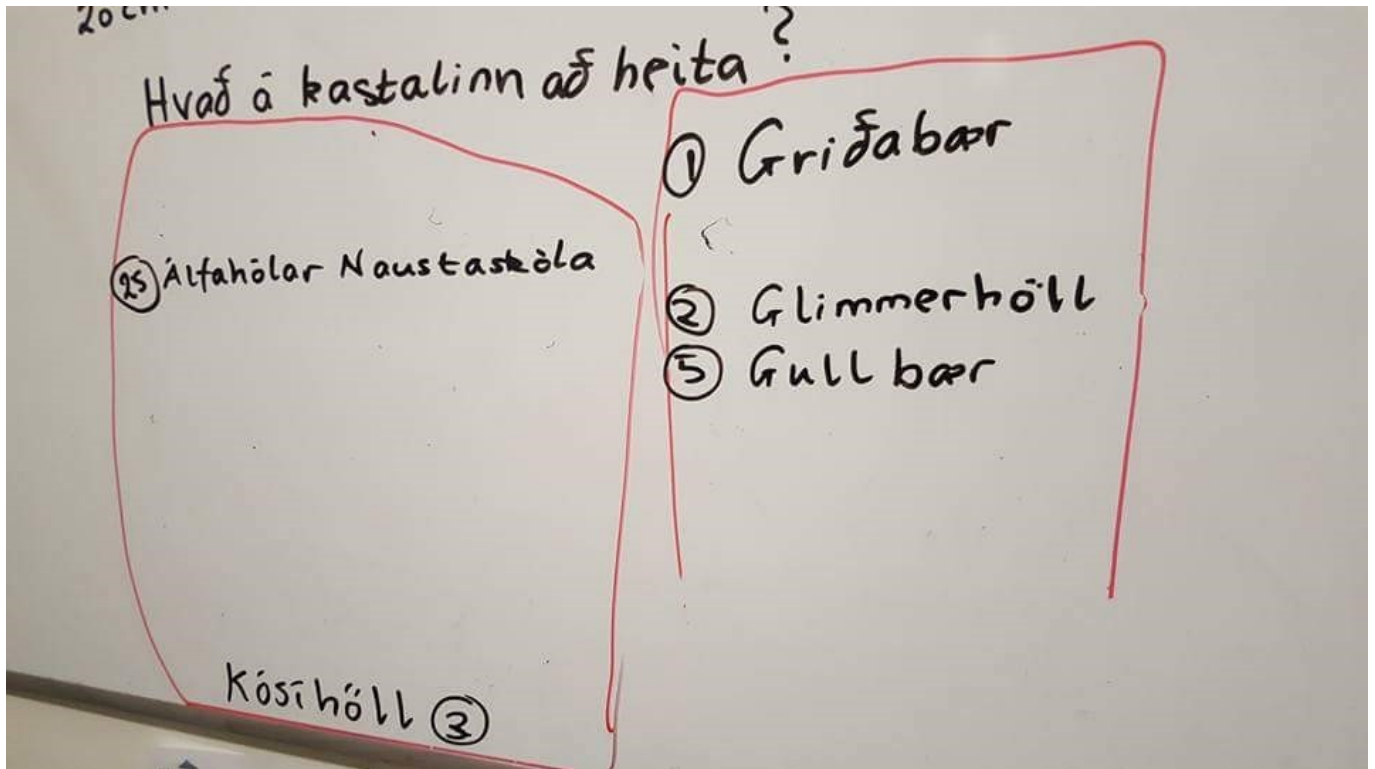 20 cm
Hvað á kastalinn að heita?
25 Álfahólar Naustaskóla
Kósíhöll 3
1 Griðabær
2 Glimmerhöll
5 Gullbær